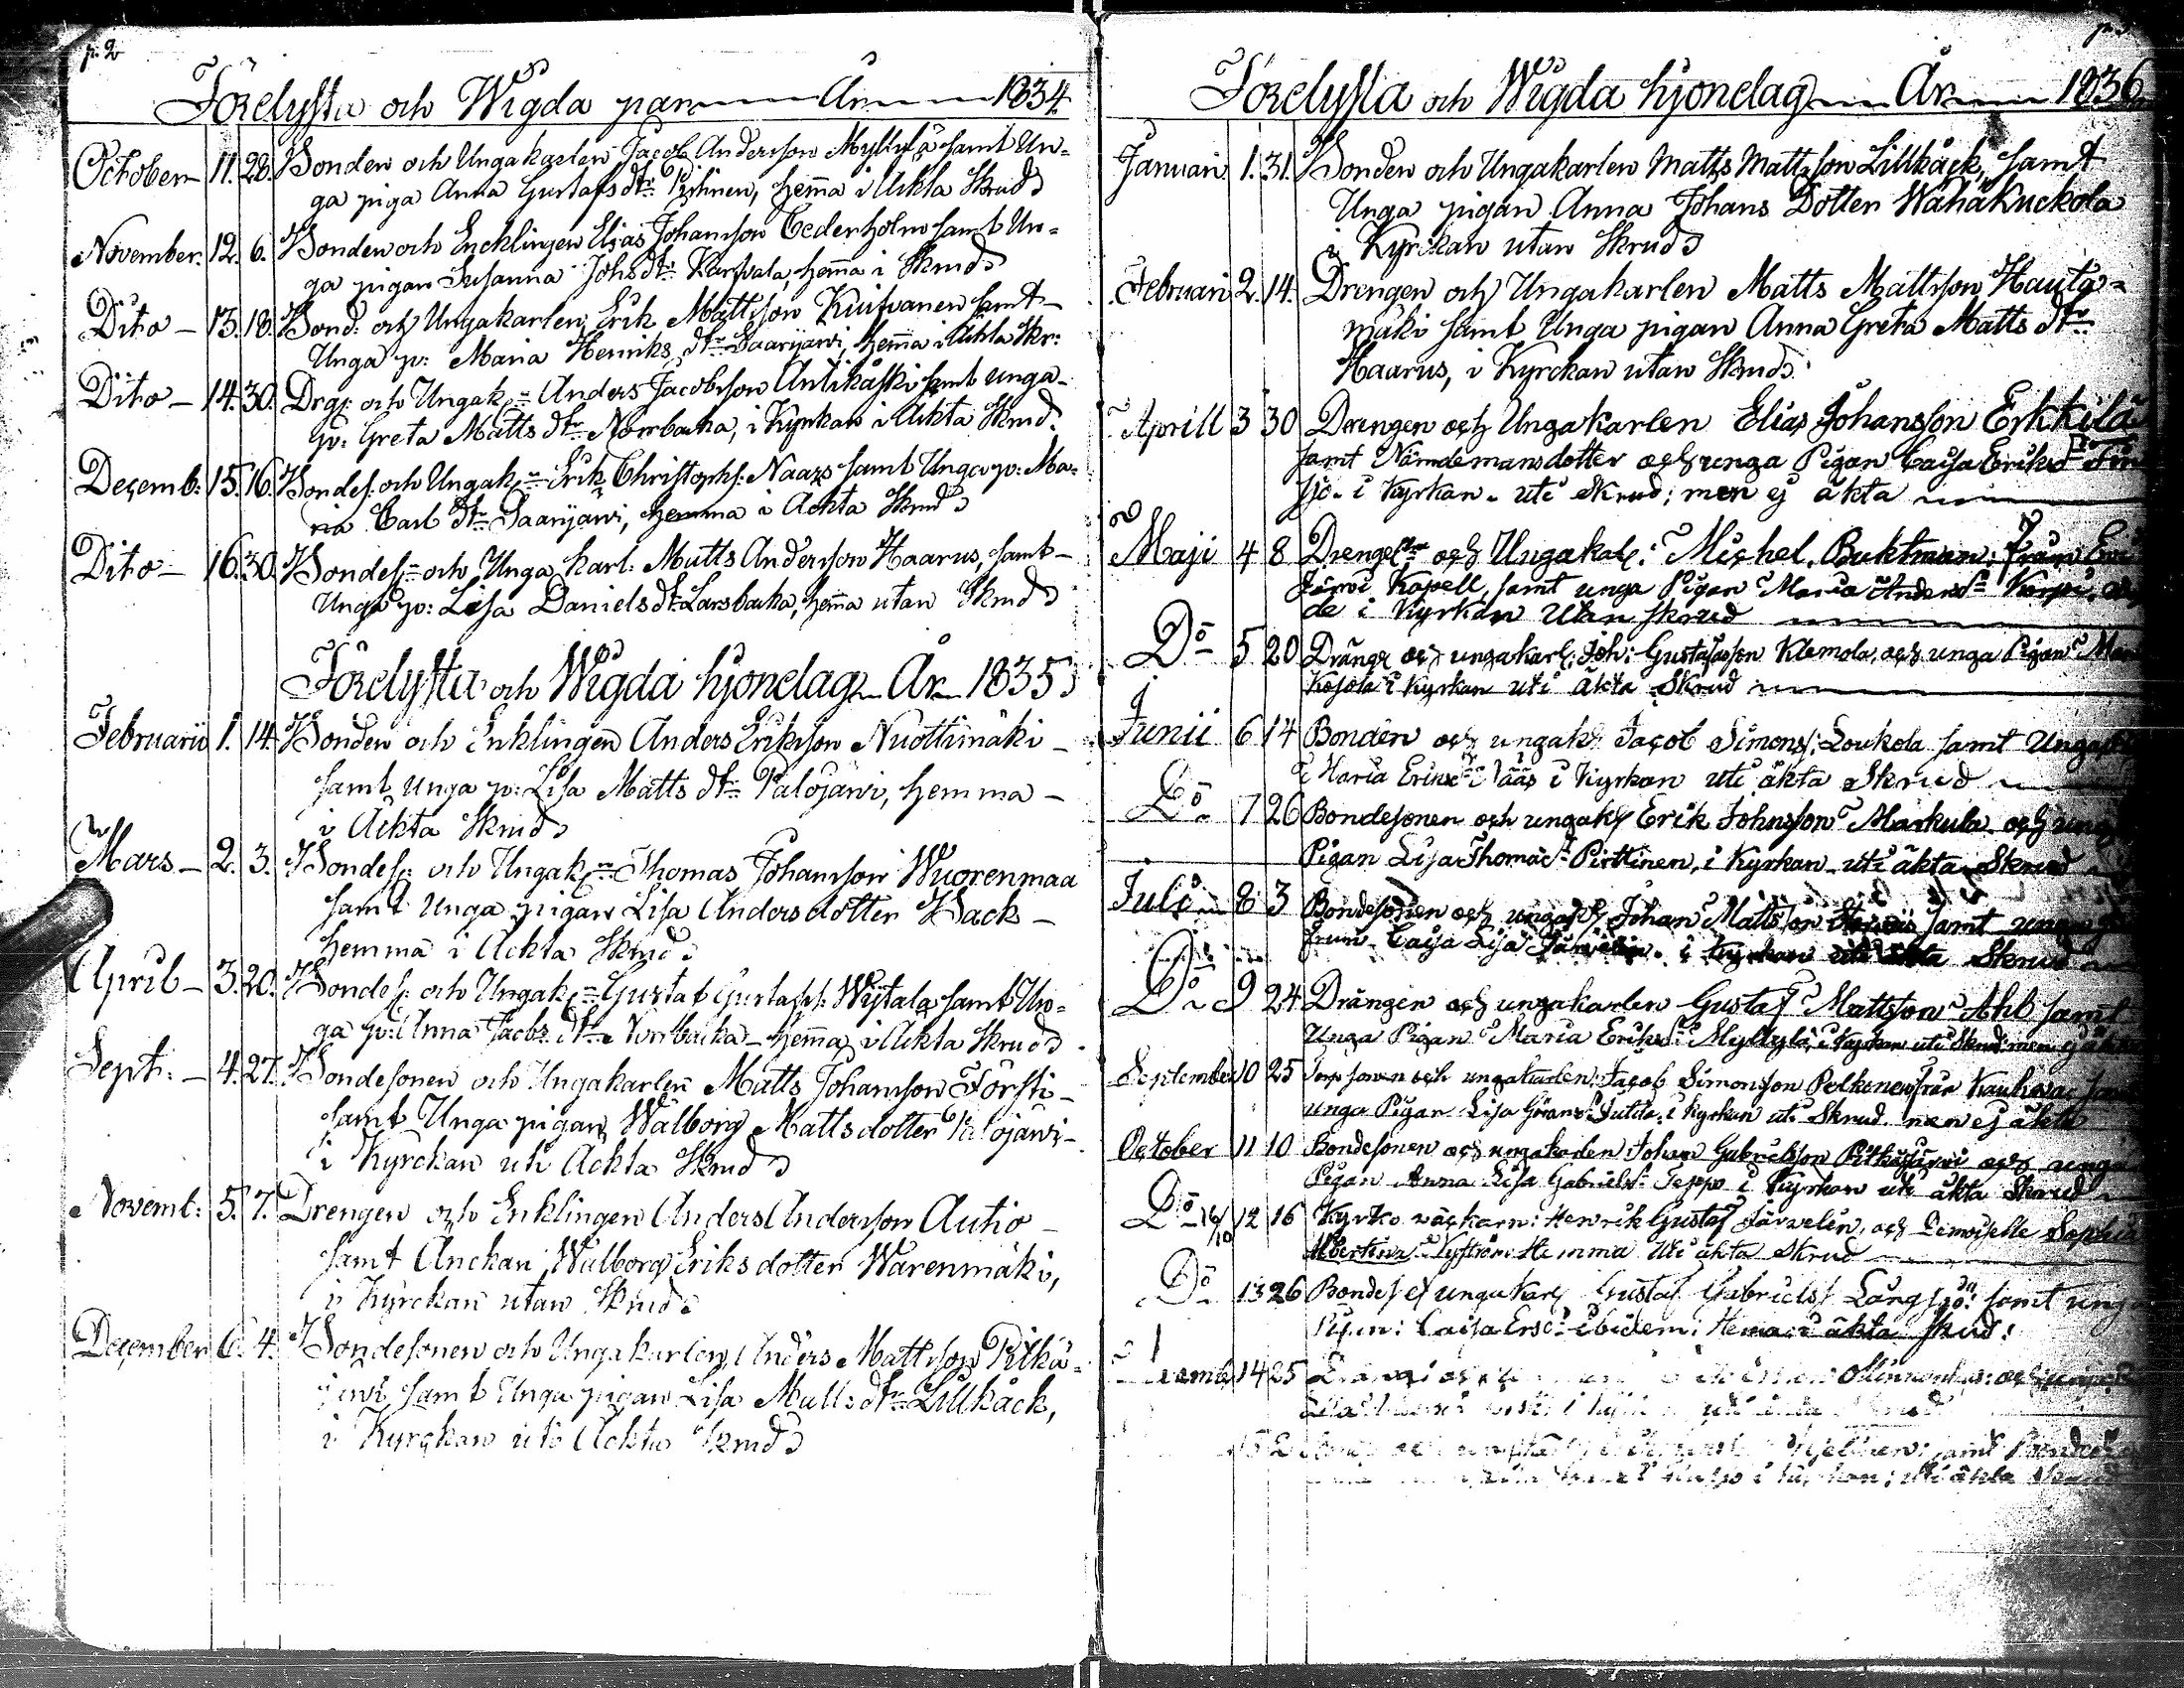 p. 2
Förelysta och Wigda par År 1834
October 11. 28. Bonden och Ungakarlen Jacob Andersson Myllylä samt Un-
ga piga Anna Gustafs dtr Pirtinen, hema i Äckta Skrud
November. 12. 6. Bonden och Encklingen Elias Johansson Cederholm samt Un-
ga pigan Susanna Johs dtr Karhvala, hema i Skrud
Dito 13. 18. Bond: och Ungakarlen Erik Mattsson Kuifvanen samt
Unga p: Maria Henriks dtr Saarijärvi, hema i Äkta Skr:
Dito 14. 30. Drg: och Ungak: Anders Jacobsson Antikåski samt unga
p: Greta Matts dtr Norrbacka, i Kyrkan i Äkta Skrud.
Decemb: 15. 16. Bondes: och Ungak: Erik Christophs: Naazs samt Unga p: Ma-
ria Carl dtr Saarijärvi, hemma i Äckta Skrud
Dito 16. 30. Bondes: och Unga karl: Matts Andersson Haarus, samt
Unga p: Lisa Daniels dtr Larsbacka, hema utan Skrud
Förelysta och Wigda hjonelag År 1835
Februarii 1. 14. Bonden och Enklingen Anders Eriksson Nuottimäki
samt Unga p: Lisa Matts dtr Palojärvi, hemma
i Äckta Skrud
Mars 2. 3. Bondes: och Ungak: Thomas Johansson Wuorenmaa
samt Unga pigan Lisa Anders dotter Back
hemma i Äckta Skrud
April 3. 20. Bondes: och Ungak: Gustaf Gustafss: Wijtala samt Un-
ga p: Anna Jacobs dtr Norrbacka hema i Äckta Skrud
Sept: 4. 27. Bondesonen och Ungakarlen Matts Johansson Försti
samt Unga pigan Walborg Matts dotter Palojärvi
i Kyrckan uti Äckta Skrud
Novemb: 5. 7. Drengen och Enklingen Anders Andersson Autio
samt Änckan Walborg Eriks dotter Warenmäki,
i Kyrckan utan Skrud
December 6. 4. Bondesonen och Ungakarlen Anders Mattsson Pitkä-
järvi samt Unga pigan Lisa Matts dtr Lillkäck,
i Kyrckan uti Äckta Skrud
Förelysta och Wigda hjonelag År 1836
Januari 1. 31. Bonden och Ungakarlen Matts Mattsson Lillkäck, samt
Unga pigan Anna Johans Dotter Wähäkuckola
i Kyrckan utan Skrud
Februari 2. 14. Drengen och Ungakarlen Matts Mattsson Hauta-
mäki samt Unga pigan Anna Greta Matts dtr
Haarus, i Kyrckan utan Skrud
Aprill 3 30 Drengen och Ungakarlen Elias Johansson Erkkilä
samt Nämdemans dotter och unga Pigan Caisa Eriks dr
sjö. i Kyrkan uti Skrud; men ej äkta
Maji 4 8 Drengen och Ungakal: Michel Buktman; från
Järvi Kapell, samt unga Pigan Maria Anders dr Karpi,
de i Kyrkan Utan skrud
Do 5 20 Dräng och ungakarl: Joh: Gustafsson Klemola, och unga Pigan
Kojola i Kyrkan uti äkta Skrud
Junii 6 14 Bonden och ungak: Jacob Simons: Loukola samt Unga
Maria Eriksd Naas i Kyrkan uti äkta Skrud
Do 7 26 Bondesonen och ungak: Erik Johnsson Markula och unga
Pigan Lisa Thomasd Pirttinen, i Kyrkan uti äkta Skrud
Juli 8 3 Bondesonen och ungak: Johan Mattsson samt unga
frun Caisa Lisa Järvelin. i Kyrkan uti äkta Skrud
Do 9 24 Drängen och ungakarlen Gustaf Mattsson Ahl samt
Unga Pigan Maria Eriksd Myllylä, i Kyrkan uti Skrud men ej äkta
September 10 25 Torpsonen och ungakarlen: Jacob Simonsson Pelkonen från Kauhava
unga Pigan Lisa Görans d: i Kyrkan uti Skrud men ej äkta
October 11 10 Bondesonen och ungakarlen Johan Gabrielsson Pitkäjärvi och unga
Pigan Anna Lisa Gabrielsd: Teppo i Kyrkan uti äkta Skrud
Do 16/10 12 16 Kyrkoväckarn: Henrik Gustaf Järvelin, och Demoiselle Sophia
Albertina Nyström Hemma Uti äkta Skrud
Do 13 26 Bondes och ungakarl Gustaf Gabriels: Långsjö: samt unga
Pigan: Caisa Ersd: ibidem: Hema i äkta skrud:
14 25
i Kyrkan: uti äkta Skrud